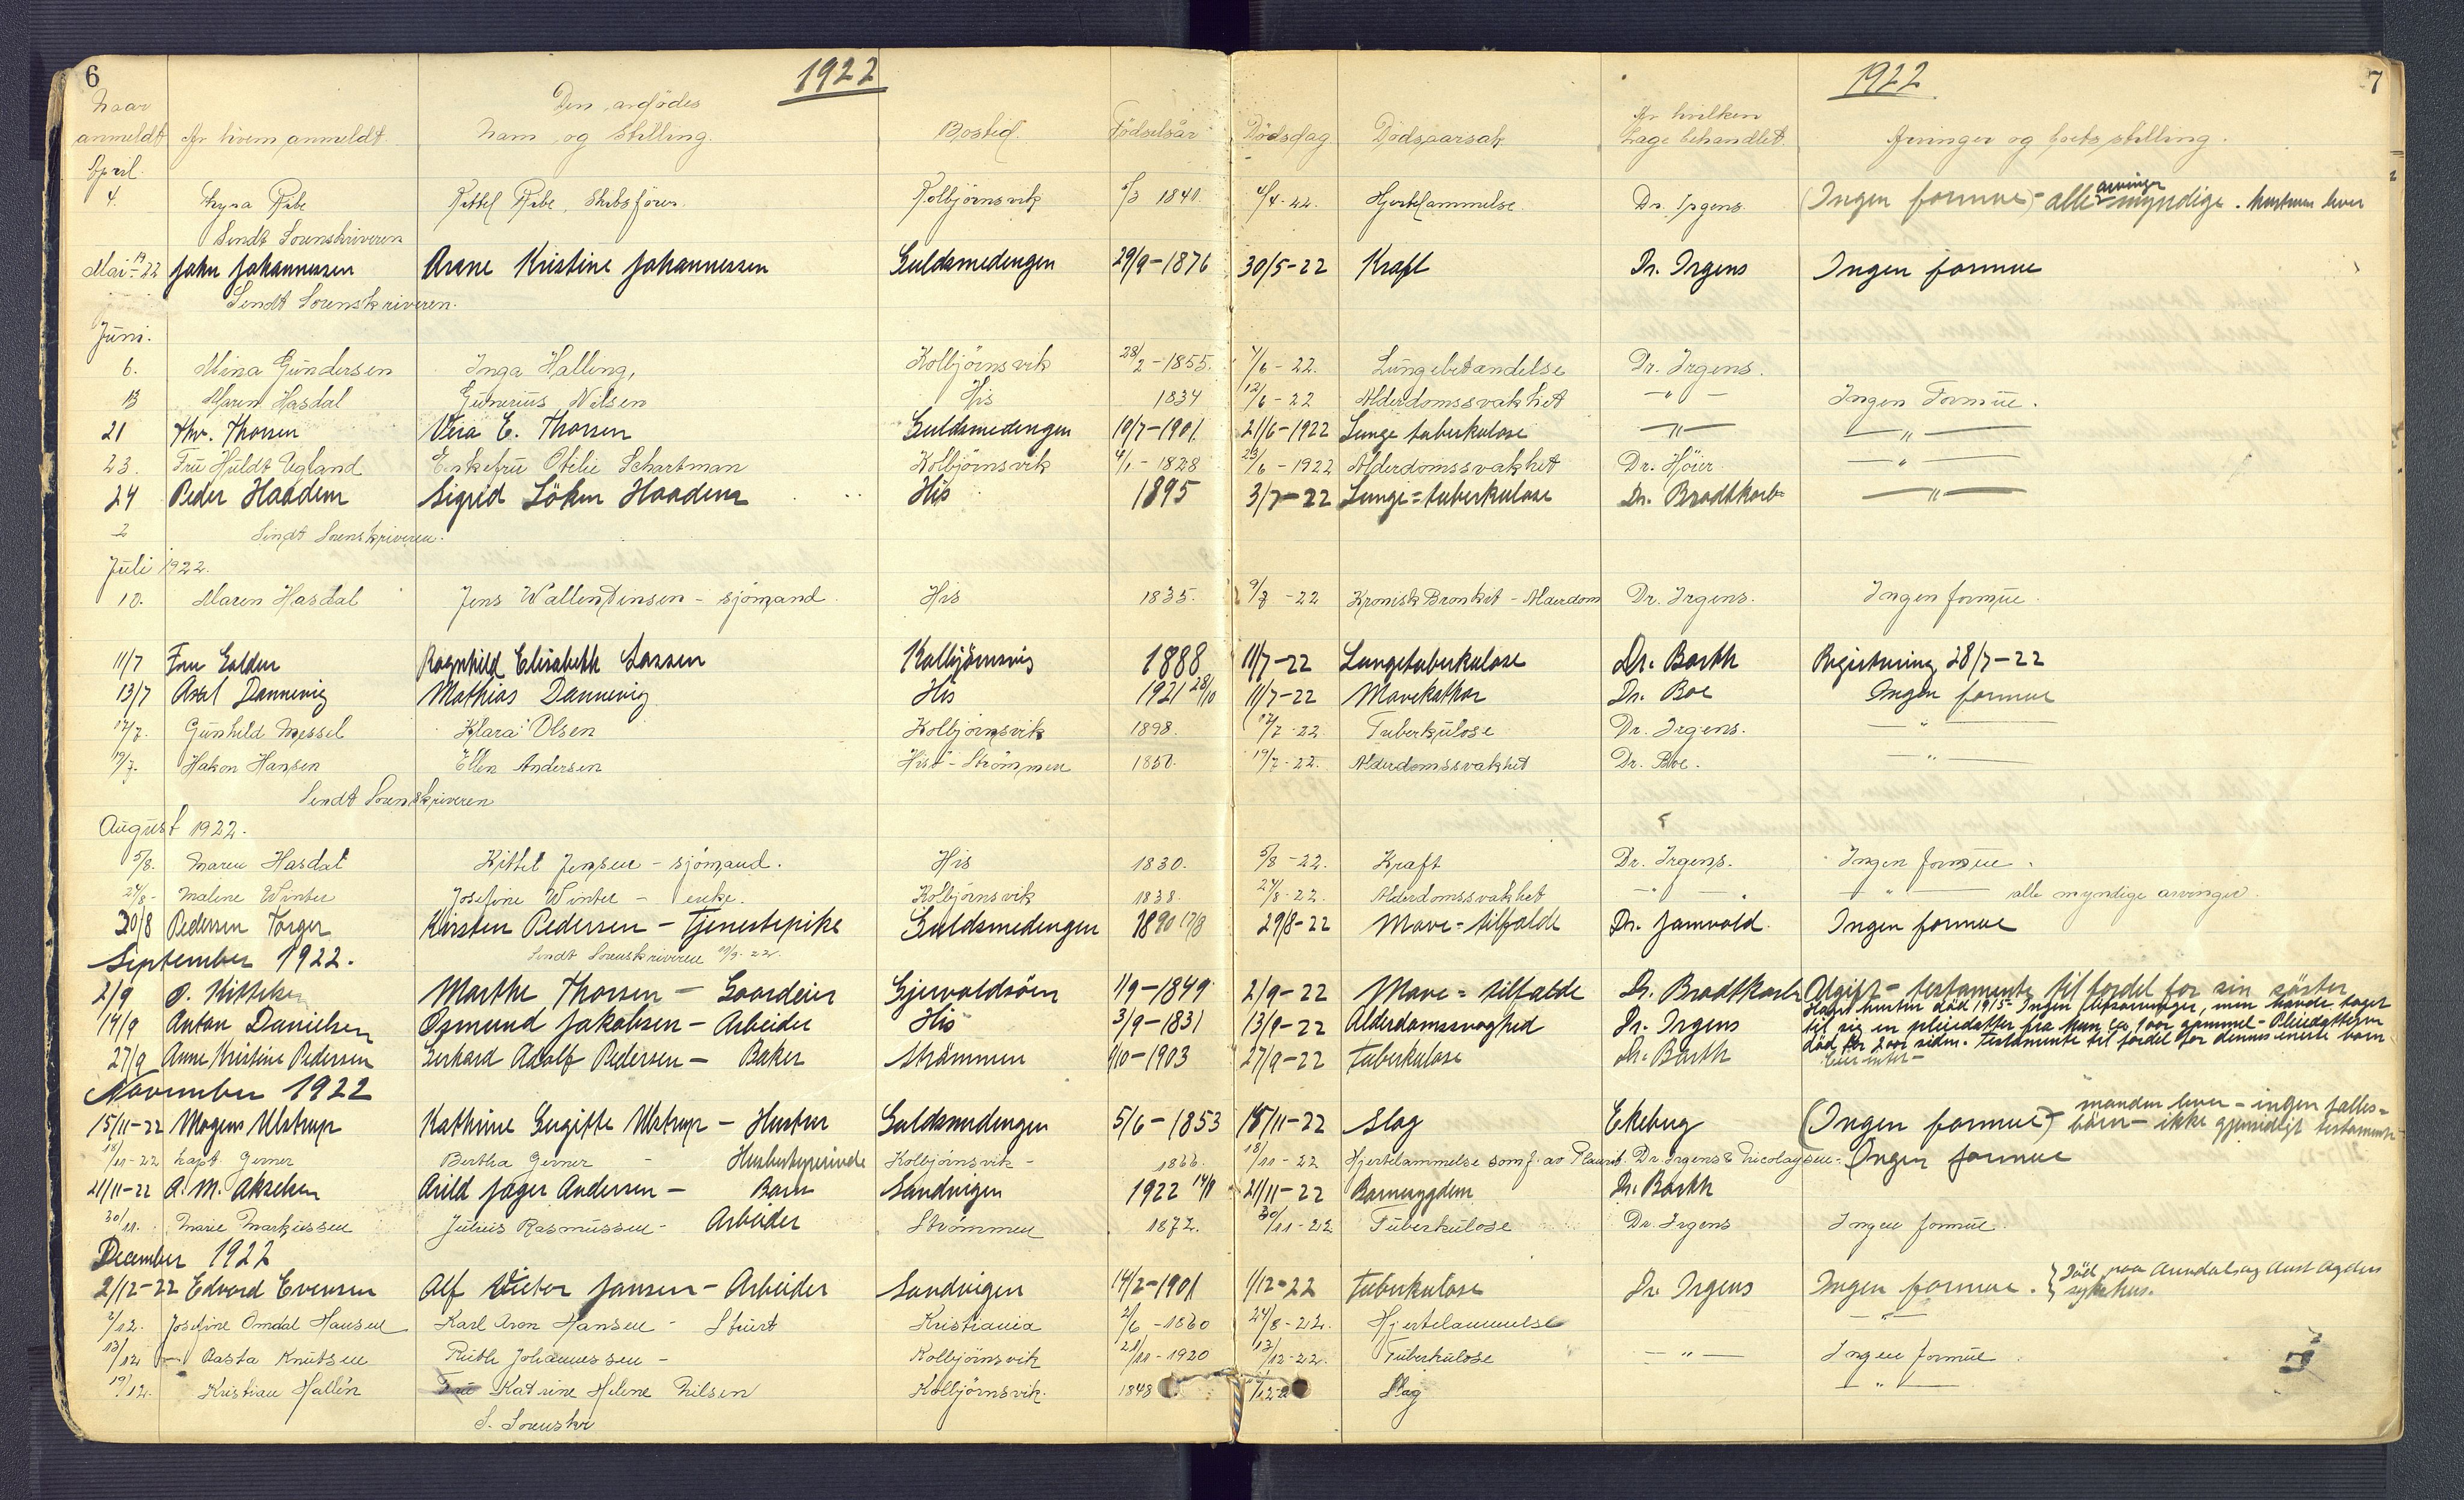 6 1922 1922 7
Naar anmeldt Av hvem anmeldt. Den avdødes Navn og stilling. Bosted. Fødselsår Dödsdag Dödsaarsak Av hvilken Læge behandlet. Arvinger og boets stilling.
April.
4. Thyra Ribe Kittel Ribe, Skibsförer. Kolbjörnsvik 5/3 1840 4/4-22. Hjertelammelse. Dr. Irgens (Ingen formue) - alle arvinger myndige. hustruen lever
Sendt Sorenskriveren
Mai 22 John Johannessen Arane Kristine Johannessen Guldsmedengen 29/9-1876 30/5-22 Kræft Dr. Irgens Ingen formue
Sendt Sorenskriveren.
Juni.
6. Mina Gundersen Inga Halling, Kolbjörnsvik 28/2-1855. 4/6-22. Lungebetændelse Dr. Irgens.
13 Maren Hasdal Gunerius Nilsen His 1834 12/6-22 Alderdomssvakhet -"- Ingen Formue.
21 Thv. Thorsen Vera E. Thorsen Guldsmedengen 10/7-1901 21/6-1922 Lunge tuberkulose -"- -"-
23. Fru Huldt Ugland Enkefru Otilie Schartman Kolbjörnsvik 4/1-1828 23/6-1922 Alderdomssvakhet Dr. Höier -"-
24 Peder Haadem Sigrid Löken Haadem His 1895 3/7-22 Lunge=tuberkulose Dr. Brodtkorb -"-
2 Sendt Sorenskriveren.
Juli 1922.
10. Maren Hasdal Jens Wallentinsen - sjömand His 1835. 9/7-22 Kronisk Bronkit - Alderdom Dr. Irgens. Ingen formue.
11/7 Fru Galden Ragnhild Elisabeth Lassen Kolbjörnsvig 1888 11/7-22 Lungetuberkulose Dr. Barth Registrering 28/7-22
13/7 Axel Dannevig Mathias Dannevig His 1921 28/10 11/7-22 Mavekathar Dr. Boe Ingen formue
17/7. Gunhild Messel Klara Olsen Kolbjörnsvik 1898. 17/7-22. Tuberkulose Dr. Irgens. -"-
19/7. Hakon Hansen Ellen Andersen His - Strömmen 1850. 19/7-22. Alderdomssvakhet Dr. Boe. -"-
Sendt Sorenskriveren
August 1922.
5/8. Maren Hasdal Kittel Jensen - sjömand. His 1830. 5/8-22. Kræft Dr. Irgens. Ingen formue.
24/8- Malene Winter Josefine Winter - enke. Kolbjörnsvik 1838. 24/8-22. Alderdomssvakhet -"- -"- alle myndige arvinger.
30/8 Pedersen Torger Kirsten Pedersen - Tjenestepike Guldsmedengen 1890 17/8 29/8-22 Mave=tilfælde Dr. Jamvold. Ingen formue
September 1922. Sendt Sorenskriveren
2/9 O. Kitteksen Marthe Thorsen - Gaardeier Gjervoldsöen 1/9-1849 2/9-22 Mave=tilfælde Dr. Brodtkorb Ugift - testamente til fordel for sin söster
14/9 Anton Danielsen Osmund Jakobsen - Arbeider His 3/9-1831 13/9-22 Alderdomssvaghed Dr. Irgens hustru död 1915 - Ingen livsarvinger, men havde taget til sig en pleiedatter fra hun ca. 9 aar gammel - Pleiedatteren
27/9 Anne Kristine Pedersen Gerhard Adolf Pedersen - Baker Strömmen 9/10-1903 27/9-22 Tuberkulose Dr. Barth död for 2 aar siden. Testamente til fordel for dennes eneste barn
Eier intet-
November 1922
15/11-22 Mogens Ulstrup Kathrine Gurgitte Ulstrup - Hustru Guldsmedengen 5/6-1853 15/11-22 Slag Ekeberg (Ingen formue) - manden lever - ingen fælles=börn - ikke gjensidigt testamente
18/11-22 Kapt. Gerner Bertha Gerner - Husbestyrerinde Kolbjörnsvik - 1866. 18/11-22 Hjertelammelse som f. av Pleurit Dr. Irgens & Nicolaysen. Ingen formue
21/11-22 A. M. Akselsen Arild Jager Andersen - Barn Sandvigen 1922 21/11-22 Barnesygdom Dr. Barth
30/11. Marie Markussen Julius Rasmussen - Arbeider Strömmen 1872. 30/11-22 Tuberkulose Dr. Irgens Ingen formue.
December 1922
2/12-22 Edvard Evensen Alf Victor Jansen - Arbeider Sandvigen 14/2-1901 1/12-22 Tuberkulose Dr. Irgens Ingen formue. } Död paa Arendal og Aust Agders sykehus.
2/12. Josefine Omdal Hansen Karl Aron Hansen - Stuert Kristiania 2/6-1860 24/8-22. Hjertelammelse -"-
13/12 Aasta Knutsen Ruth Johannessen - Kolbjörnsvik 21/11-1920 13/12-22. Tuberkulose -"- Ingen formue
19/12. Kristian Hallén Fru Katrine Helene Nilsen Kolbjörnsvik. 1848 Slag -"-
S. Sorenskr